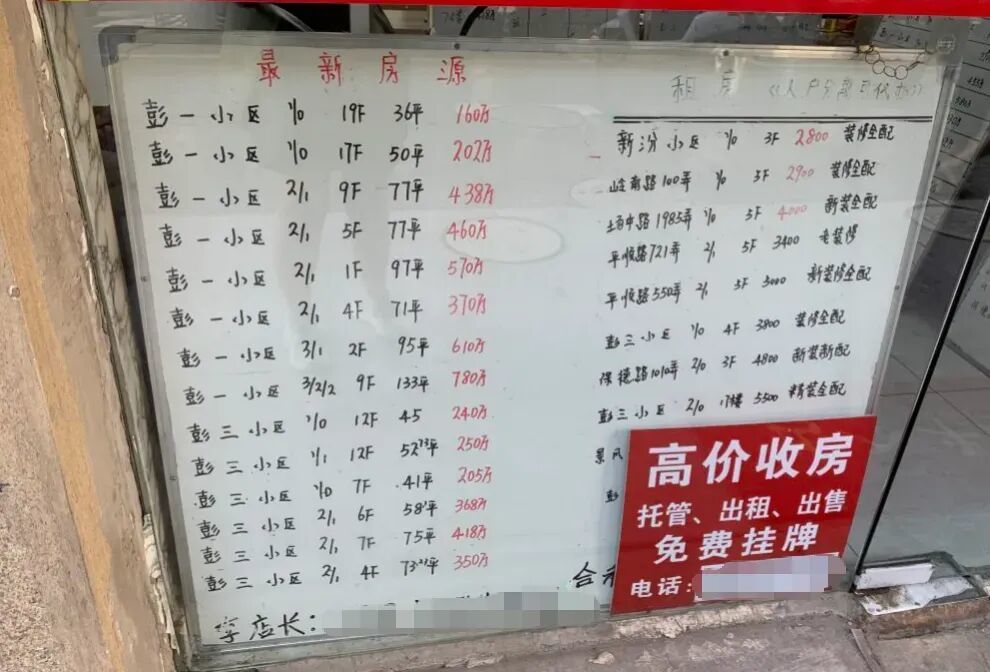 最新房源
彭一小区 1/0 19F 36平 160万
彭一小区 1/0 17F 50平 202万
彭一小区 2/1 9F 77平 438万
彭一小区 2/1 5F 77平 460万
彭一小区 2/1 1F 97平 570万
彭一小区 2/1 4F 71平 370万
彭一小区 3/1 2F 95平 610万
彭一小区 3/2/2 9F 133平 780万
彭三小区 1/0 12F 45 240万
彭三小区 1/1 12F 52.73平 250万
彭三小区 1/0 7F 41平 205万
彭三小区 2/1 6F 58平 368万
彭三小区 2/1 7F 75平 418万
彭三小区 2/1 4F 350万
李店长:
租房 《人户分离可代办》
新汾小区 1/0 3F 2800 装修全配
岭南路100弄 1/0 3F 2900 装修全配
中路1985弄 1/0 3F 4000 新装全配
平顺路721弄 2/1 5F 3400 老装修
平顺路550弄 2/1 3F 新装修全配
彭三小区 1/0 4F 3800 装修全配
保德路1010弄 2/0 3F 4800 新装新配
彭三小区 2/0 5500 精装全配
景凤
彭
高价收房
托管、出租、出售
免费挂牌
电话: